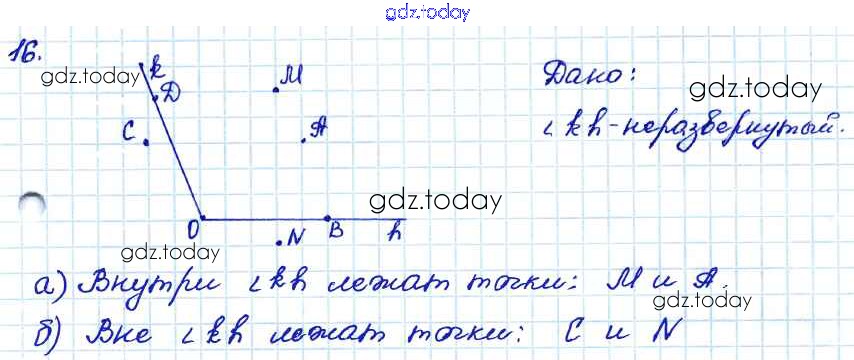 gdz.today
16.
k
M
Дано:
gdz.today
D
gdz.today
C
A
∠kh-неразвернутый.
gdz.today
O
B
h
N
gdz.today
а) Внутри ∠kh лежат точки: M и A.
gdz.today
б) Вне ∠kh лежат точки: C и N